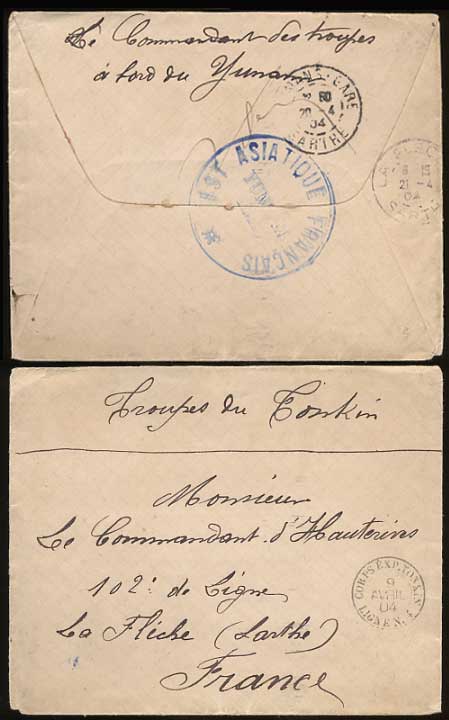 Le Commandant des troupes
à bord du Yunnan
MANS-GARE
20 -4
04
SARTHE
EST ASIATIQUE FRANÇAIS
LA
21 -4
04
SART
Troupes du Tonkin
Monsieur
Le Commandant d'Hauterives
102e de Ligne
La Flèche (Sarthe)
France
CORPS EXP. TONKIN
9
AVRIL
04
LIGNE N.